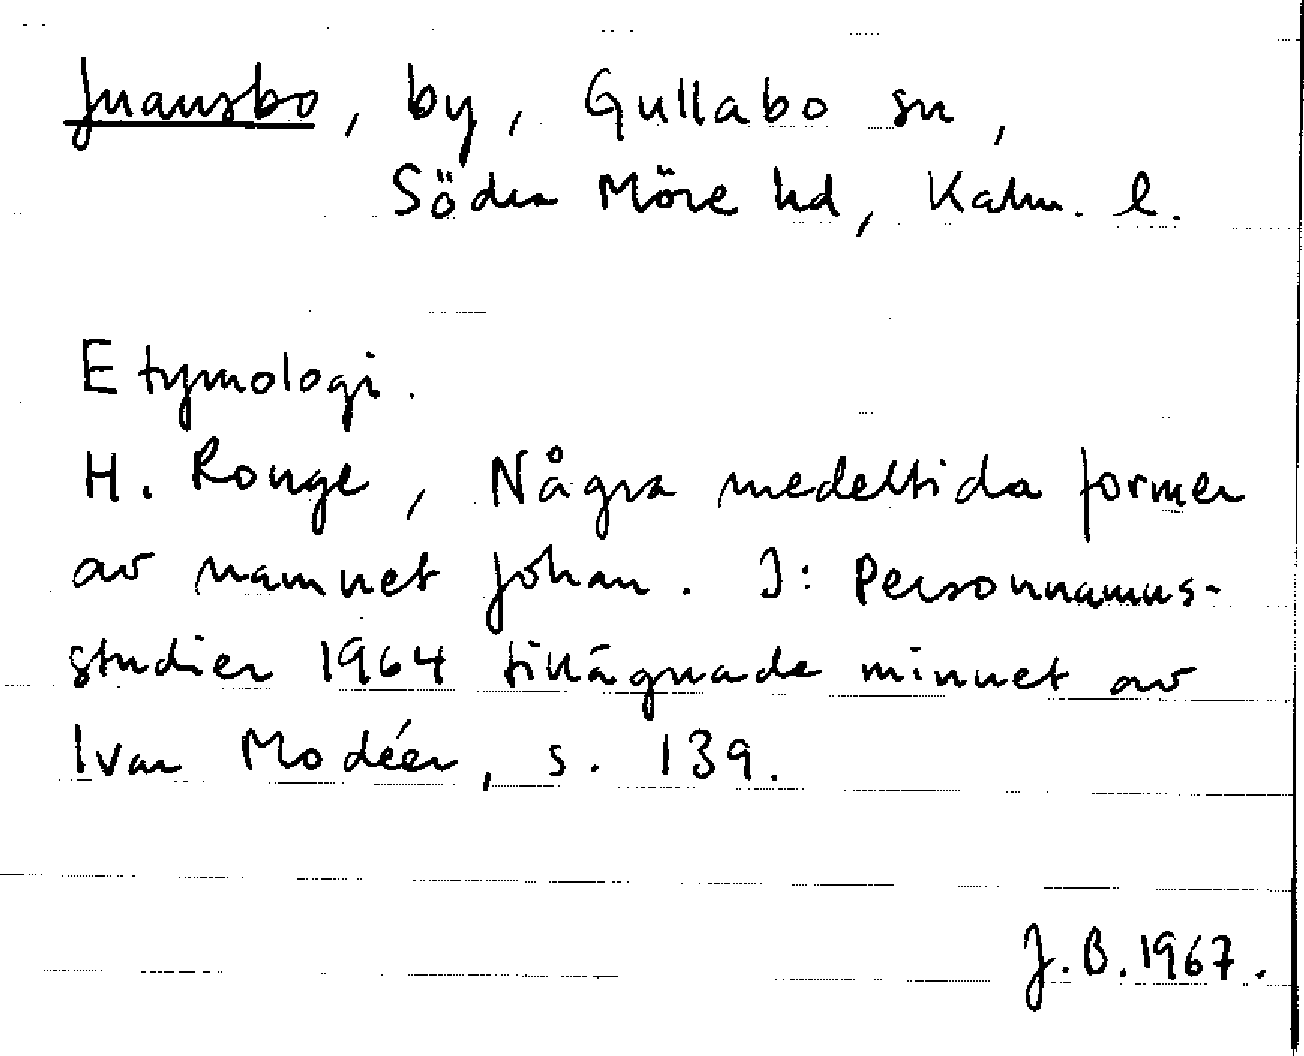 Juansbo, by, Gullabo sn,
Södra Möre hd, Kalm. l.
Etymologi.
H. Ronge, Några medeltida former
av namnet Johan. I: Personnamns-
studier 1964 tillägnade minnet av
Ivar Modéer, s. 139.
J.B. 1967.